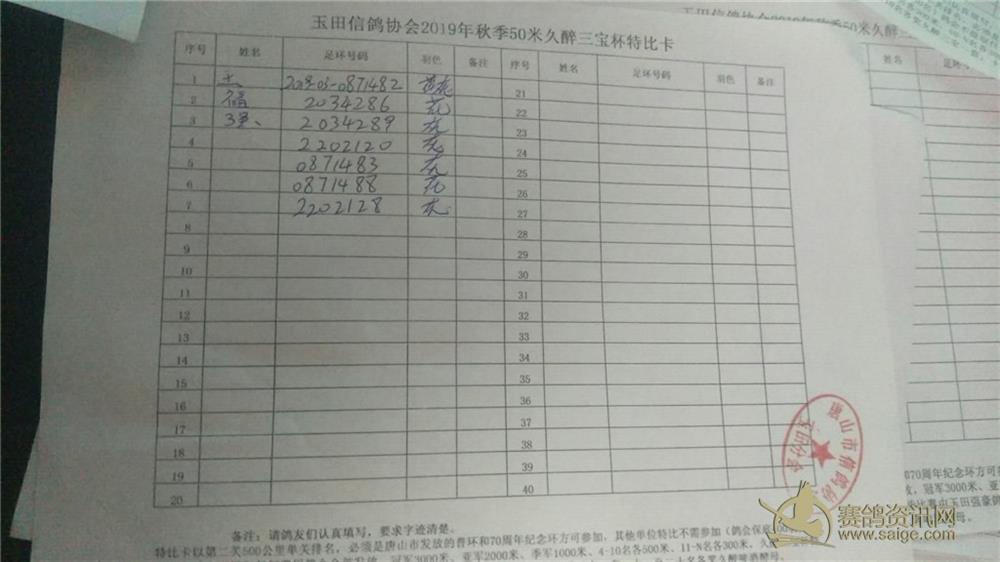 玉田信鸽协会2019年秋季50米久醉三宝杯特比卡
序号 姓名 足环号码 羽色 备注 序号 姓名 足环号码 羽色 备注
1 王 2019-03-0871482 花 21
2 福 2034286 花 22
3 强 2034289 灰 23
4 2202120 灰 24
5 0871483 灰 25
6 0871488 花 26
7 2202128 灰 27
8 28
9 29
10 30
11 31
12 32
13 33
14 34
15 35
16 36
17 37
18 38
19 39
20 40
备注：请鸽友们认真填写，要求字迹清楚。
特比卡以第二关500公里单关排名，必须是唐山市发放的普环和70周年纪念环方可参加，其他单位特比不需参加（鸽会保底
冠军3000米、亚军2000米、季军1000米、4-10名各500米、11-N名各300米、久
唐山市信鸽协
玉田信鸽协会2019年秋季50米久醉三宝杯
姓名
和70周年纪念环方可
冠军3000米、亚
赛鸽资讯网
www.saige.com